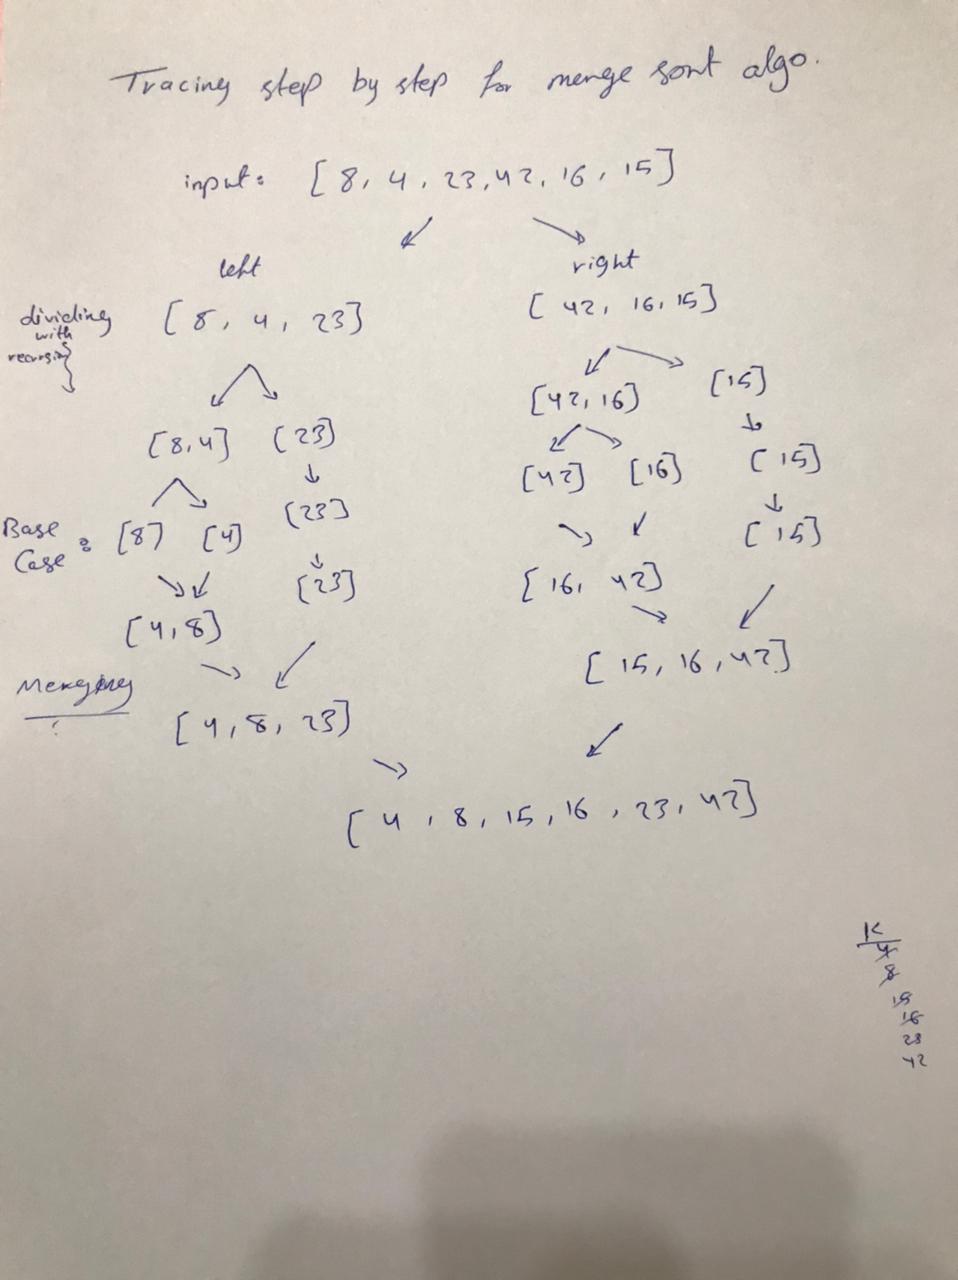 Tracing step by step for merge sort algo.
input: [8, 4, 23, 42, 16, 15]
left right
dividing with recursion [8, 4, 23] [42, 16, 15]
[8, 4] [23] [42, 16] [15]
Base Case: [8] [4] [23] [42] [16] [15]
[4, 8] [23] [16, 42] [15]
Merging [4, 8, 23] [15, 16, 42]
[4, 8, 15, 16, 23, 42]
K
4
8
15
16
23
42